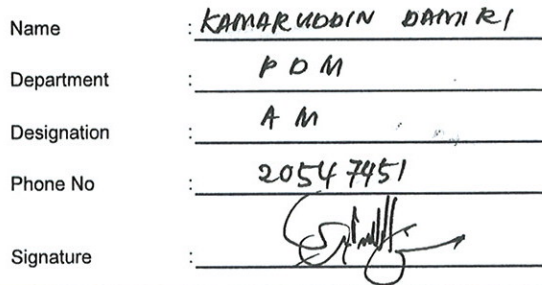 Name : KAMARUDDIN DAMIRI
Department : PDM
Designation : AM
Phone No : 20547451
Signature :